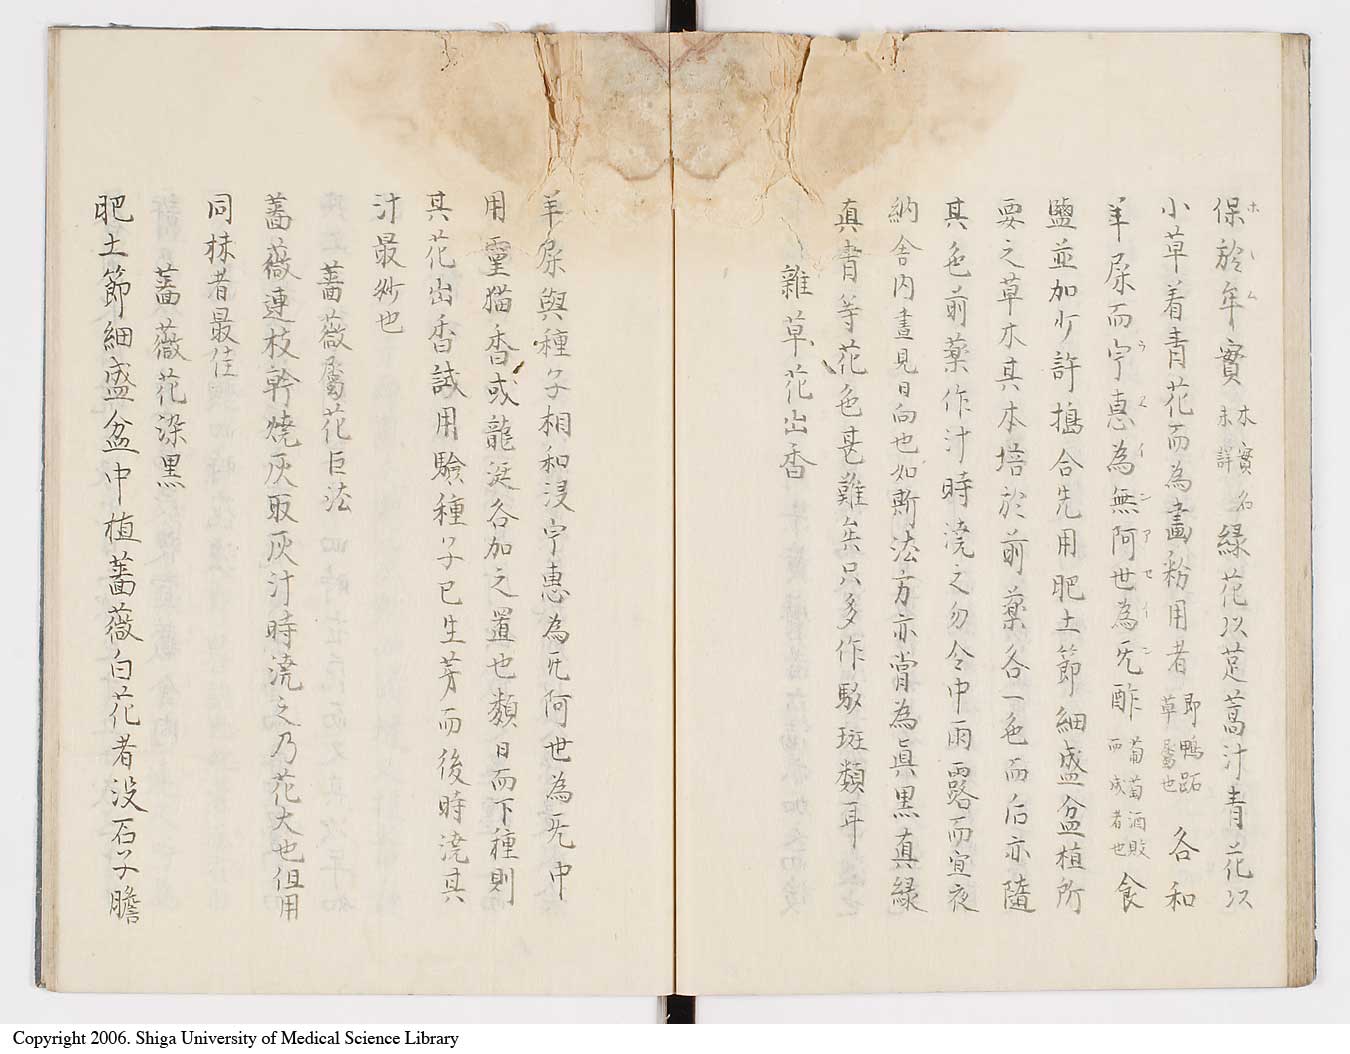 保於年實木實名未詳緑花以莛蒿汁青花以
小草着青花而為畫粉用者即鴨跖草屬也各和
羊屎而宁惠為無阿世為旡酢葡萄酒敗而成者也食
鹽並加少許搗合先用肥土節細盛盆植所
要之草木其本培於前薬各一色而后亦隨
其色前薬作汁時澆之勿令中雨露而宜夜
納舎内晝見日向也如斯法方亦甞為眞黒真緑
真青等花色甚難矣只多作駁斑類耳
雜草花出香
羊屎與種子相和浸宁惠為旡何世為旡中
用霊猫香或龍涎各加之置也類日而下種則
其花出香試用驗種子已生芽而後時澆其
汁最妙也
薔薇屬花巨法
薔薇連枝幹燒灰取灰汁時澆之乃花大也但用
同株者最佳
薔薇花染黒
肥土節細盛盆中植薔薇白花者没石子膽
Copyright 2006. Shiga University of Medical Science Library